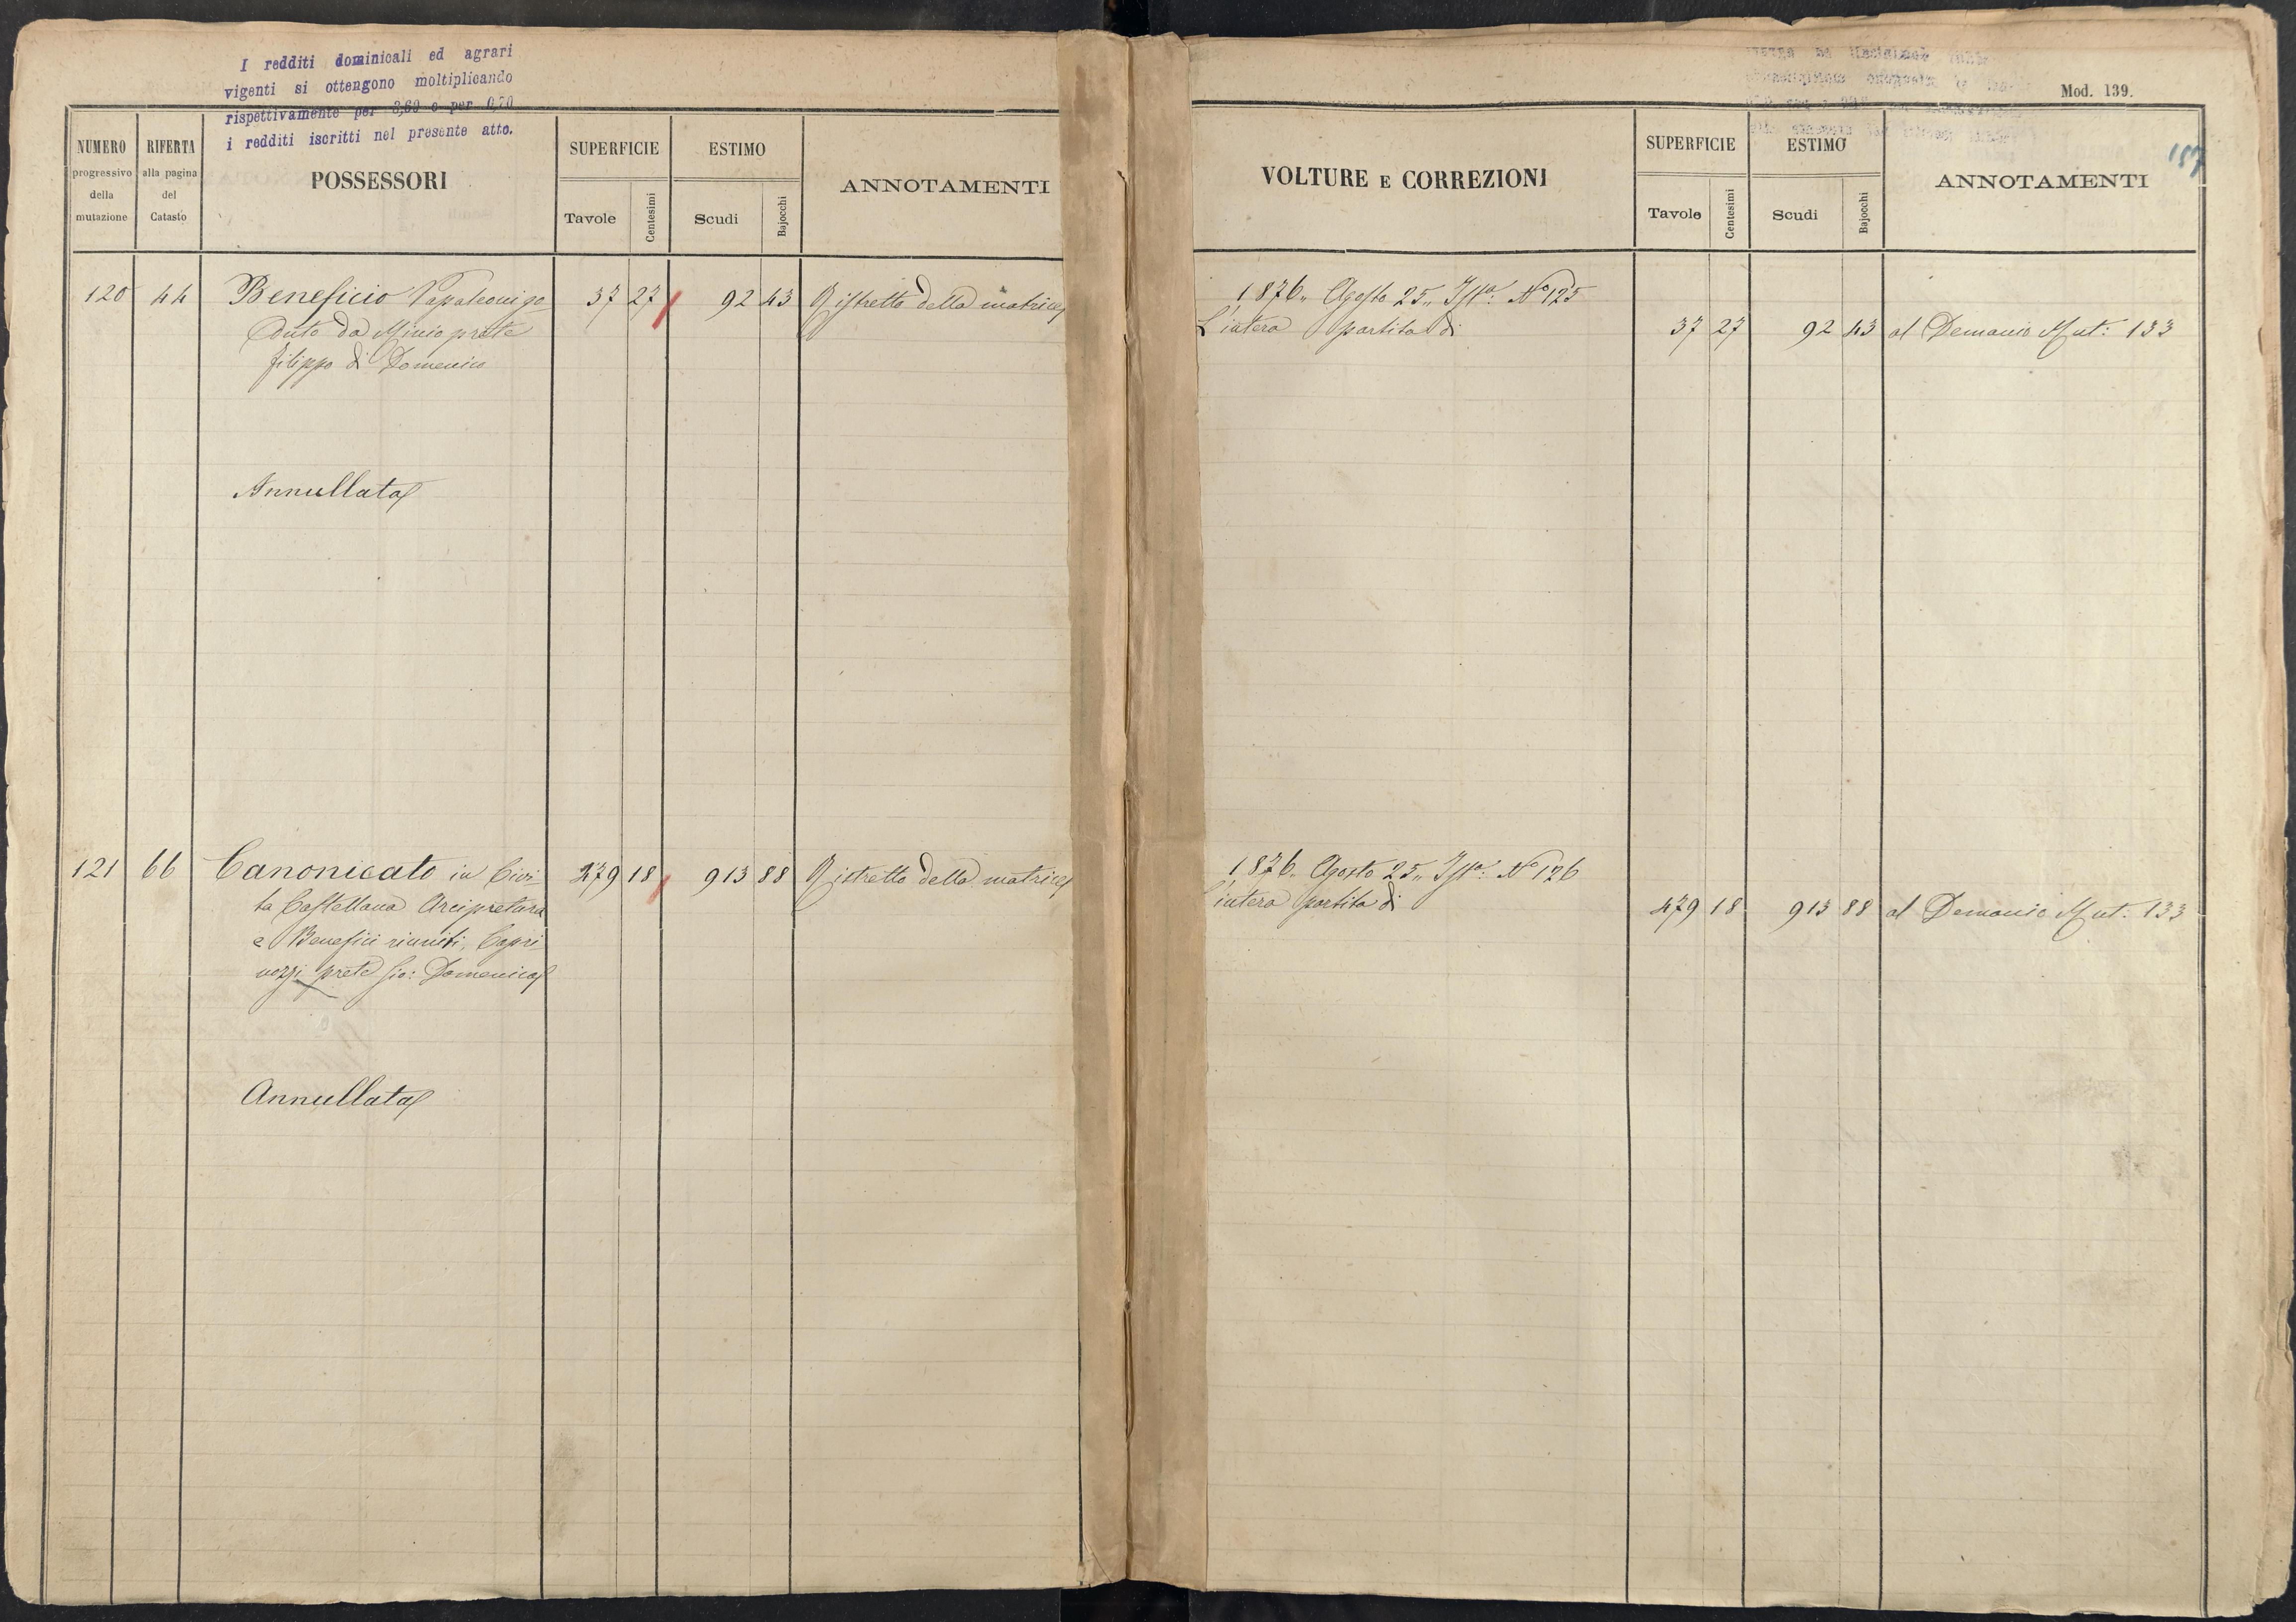 I redditi dominicali ed agrari
vigenti si ottengono moltiplicando
rispettivamente per 3,60 e per 0,70
i redditi iscritti nel presente atto.
NUMERO progressivo della mutazione
RIFERTA alla pagina del Catasto
POSSESSORI
SUPERFICIE
Tavole Centesimi
ESTIMO
Scudi Bajocchi
ANNOTAMENTI
120 44 Beneficio 37 27 92 43 Ristretto della matrice
duto da Minio prete
filippo di Domenico
Annullata
121 66 Canonicato in Civi- 479 18 913 88 Ristretto della matrice
ta Castellana Arcipretura
e Benefici riuniti, Capri
nozzi prete Gio: Domenico
Annullata
Mod. 139.
157
VOLTURE E CORREZIONI
SUPERFICIE
Tavole Centesimi
ESTIMO
Scudi Bajocchi
ANNOTAMENTI
1876" Agosto 25" Ista: No 125
L'intera partita di 37 27 92 43 al Demanio Mut: 133
1876" Agosto 25" Ista: No 126
L'intera partita di 479 18 913 88 al Demanio Mut: 133